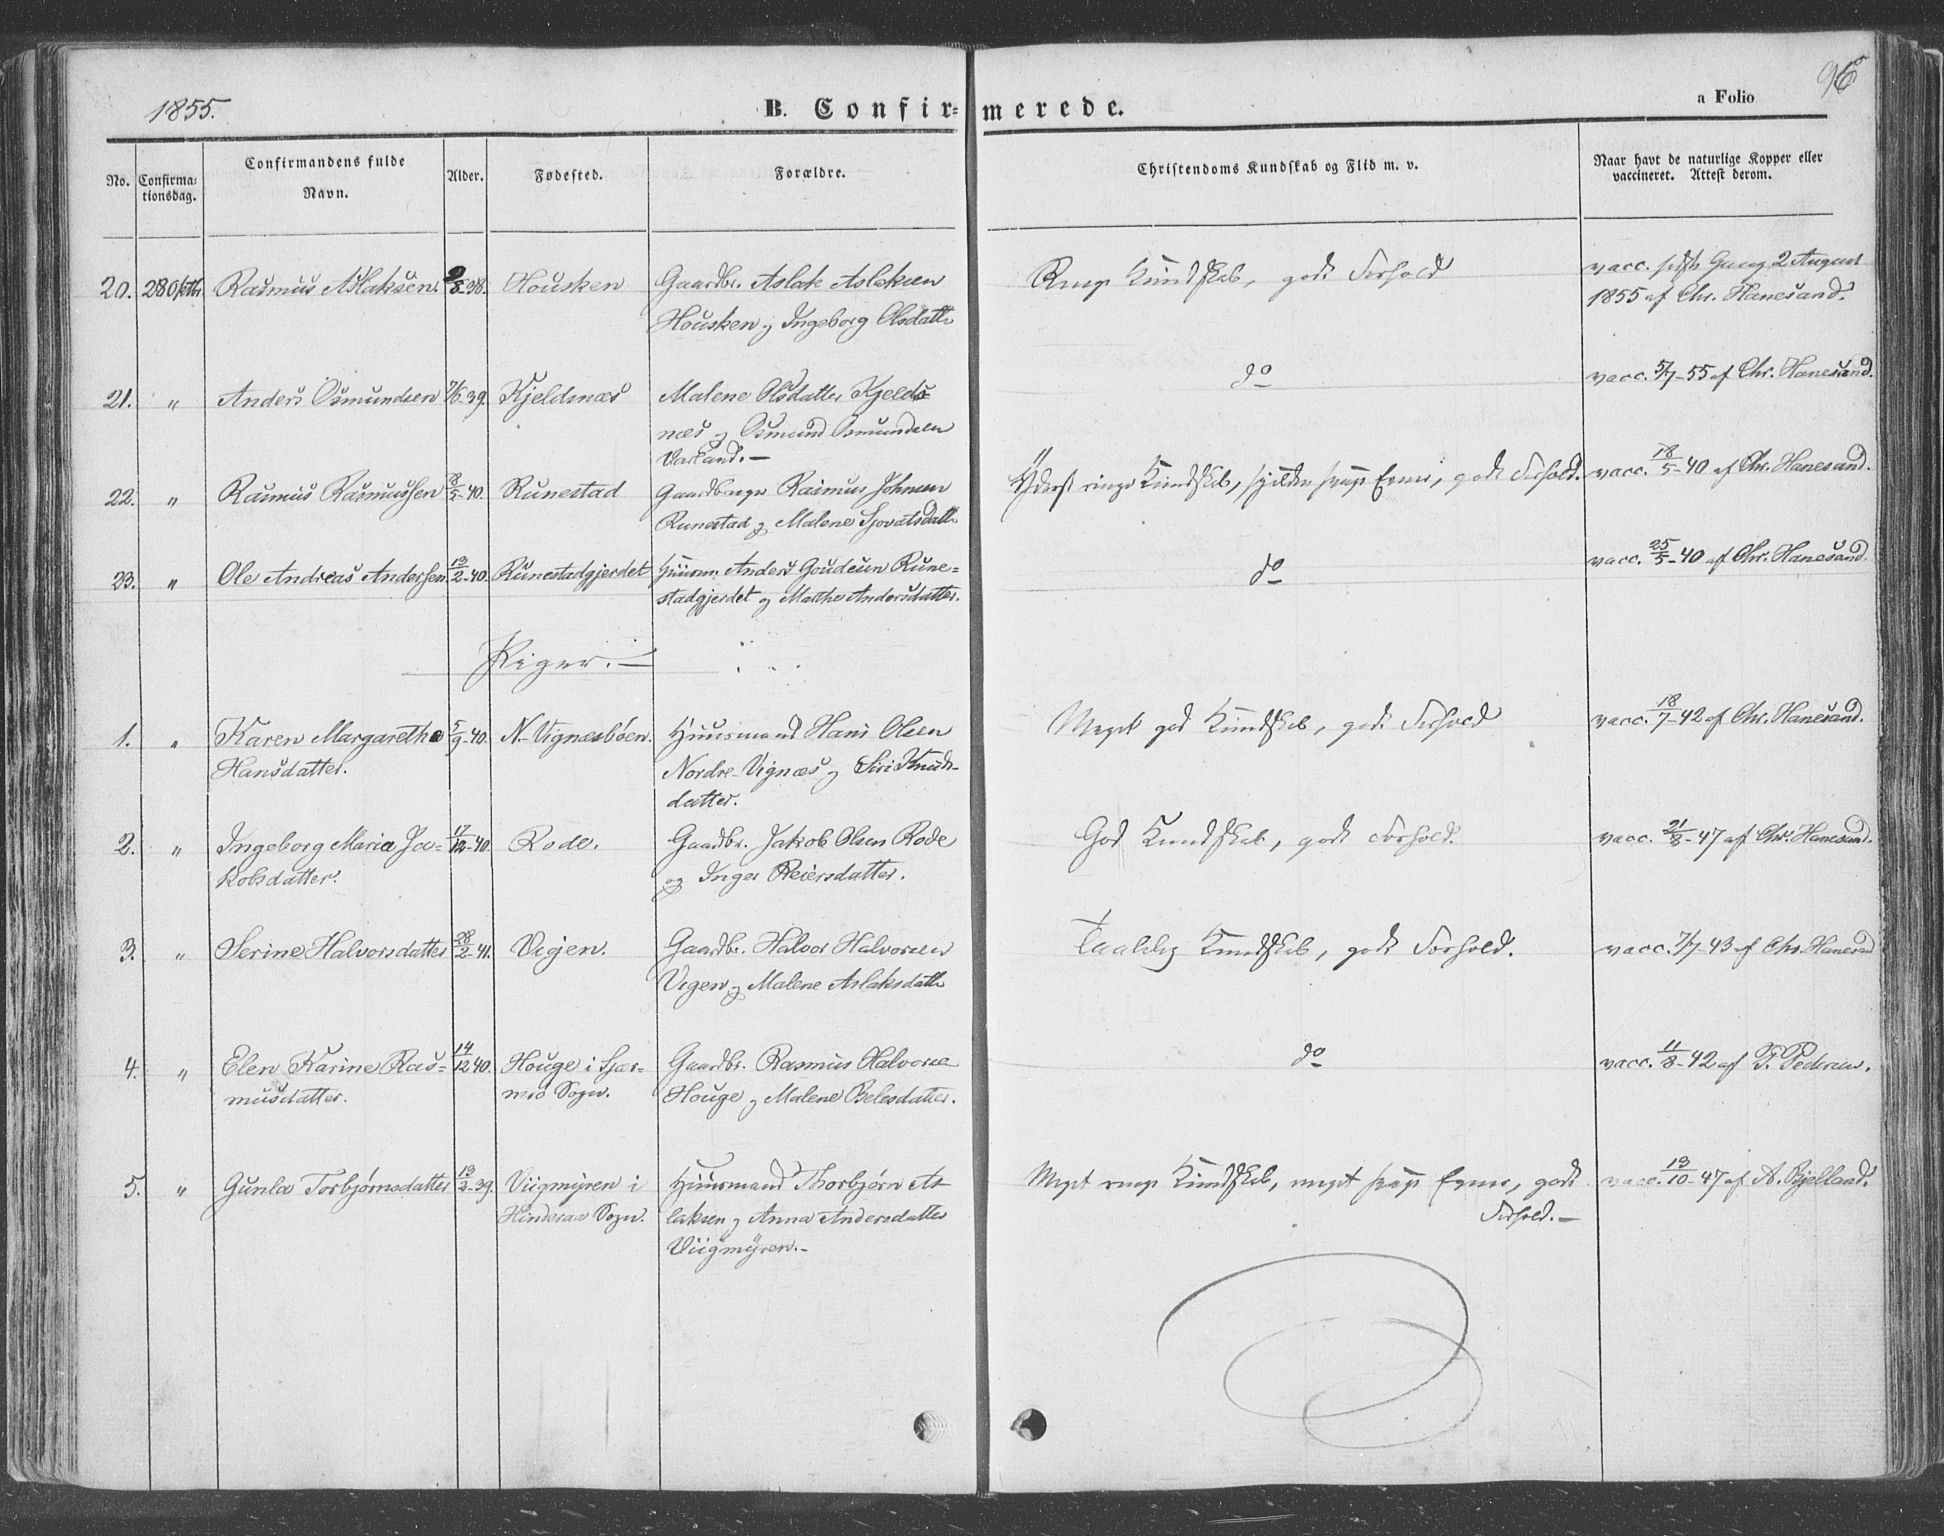 1855.
B. Confirmerede.
a Folio 96
No.
Confirma:
tionsdag.
Confirmandens fulde
Navn.
Alder.
Fødested.
Forældre.
Christendoms Kundskab og Flid m. v.
Naar havt de naturlige Kopper eller
vaccineret. Attest derom.
20. 28 Rasmus Aslaksen. 38. Housken Gaardbr. Aslak Aslaksen Ringe Kundskab, godt Forhold vacc. sidste Gang 2 August
Housken og Ingeborg Olsdatter 1855 af Chr. Hanesand.
21. " Anders Osmundsen 7/6-39. Kjeldsnæs Malene Olsdatter Kjelds= do vacc. 5/7-55 af Chr. Hanesand.
næs og Osmund Osmundsen
22. " Rasmus Rasmussen 8/5-40. Runestad Rasmus Johnsen Yderst ringe Kundskab, svage Evner, godt Forhold. vacc. 18/5-40 af Chr. Hanesand.
Runestad og Malene
23. " Ole Andreas Andersen 13/2-40. Runestadgjerdet Huusm. Anders Rune= do vacc. 25/5-40 af Chr. Hanesand.
stadgjerdet og Marthe Andersdatter.
Piger. —
1. " Karen Margarethe 5/9-40. N. Vignesbøen. Huusmand Hans Olsen Meget god Kundskab, godt Forhold vacc. 18/7-42 af Chr. Hanesand.
Hansdatter. Nordre Vignæs og Siri Knuds-
datter.
2. " Ingeborg Maria Ja- 17/12-40. Rode. Gaardbr. Jakob Olsen Rode God Kundskab, godt Forhold. vacc. 21/8-47 af Chr. Hanesand.
kobsdatter. og Inger Reiersdatter.
3. " Serine Halvorsdatter 28/2-41. Vigen. Gaardbr. Halvor Halvorsen Taalelig Kundskab, godt Forhold. vacc. 7/7-43 af Chr. Hanesand
Vigen og Malene Aslaksdatter
4. " Elen Karine Ras= 14/12 40. Houge i Gaardbr. Rasmus Halvorsen do vacc. 11/8-42 af T. Pedersen.
musdatter. Sogn. Houge og Malene
5. " Gunla Torbjørnsdatter 13/2-39. Viigmyren i Huusmand Thorbjørn As- Meget ringe Kundskab, meget svage Evner, godt vacc. 13/10-47 af A. Bjelland.
Hinderaa Sogn. laksen og Anna Andersdatter Forhold. —
Viigmyren. -